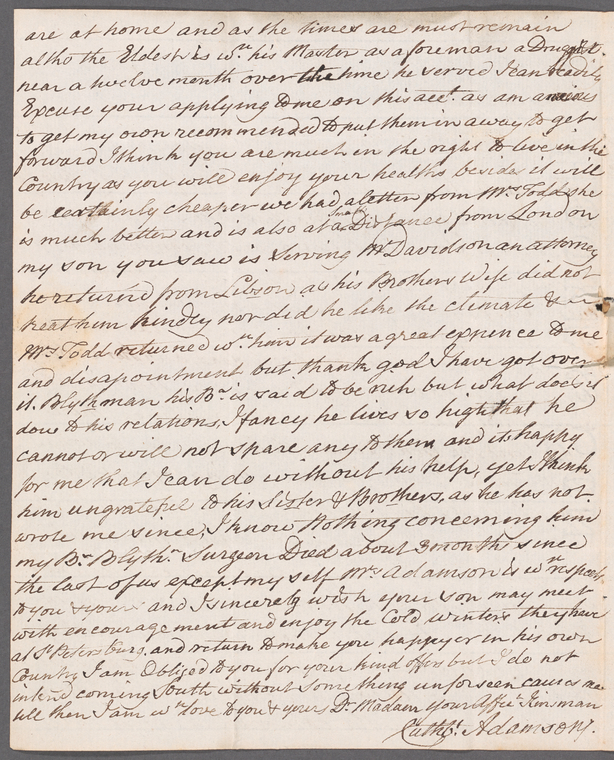 are at home and as the times are must remain
altho the Eldest is wth his Master as a foreman a Druggist
near a twelve month over the time he served I can readily
Excuse your applying to me on this acct. as am anxious
to get my own recommended to put them in a way to get
forward I think you are much in the right to live in the
Country as you will enjoy your healths besides it will
be certainly cheaper we had a letter from Mrs Todd she
is much better and is also at a small Distance from London
my son you saw is Serving Mr Davidson an attorney
he return'd from Lisbon as his Brothers Wife did not
treat him kindly nor did he like the climate &
Mrs Todd returned wth him it was a great expence to me
and disapointment but thank god I have got over
it. Blythman his Br. is said to be rich but what does it
dow to his relations, I fancy he lives so high that he
cannot or will not spare any to them and it's happy
for me that I can do without his help, yet I think
him ungrateful to his Sister & Brothers, as he has not
wrote me since, I know Nothing concerning him
my Br. Blythn. Surgeon Died about 3 months since
the last of us except my self Mrs Adamson is wth respect
to you & yours and I sincerely wish your son may meet
with encouragement and enjoy the Cold winters they have
at St Petersburg, and return to make you happyer in his own
Country I am Obliged to you for your kind offers but I do not
intend coming South without Something unforseen causes me
till then I am wth love to you & yours Dr. Madam your Affect. Kinsman
Cuthbt. Adamson.